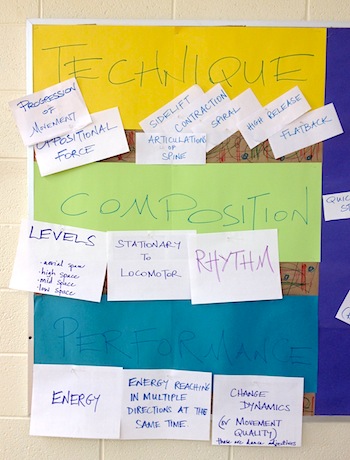 TECHNIQUE
PROGRESSION
OF
MOVEMENT
OPPOSITIONAL
FORCE
SIDELIFT
CONTRACTION
SPIRAL
HIGH RELEASE
FLATBACK
ARTICULATIONS
OF
SPINE
COMPOSITION
LEVELS
· aerial space
· high space
· mid space
· low space
STATIONARY
TO
LOCOMOTOR
RHYTHM
QUIC
PERFORMANCE
ENERGY
ENERGY REACHING
IN MULTIPLE
DIRECTIONS AT THE
SAME TIME
CHANGE
DYNAMICS
(OR MOVEMENT
QUALITY)
these are dance adjectives